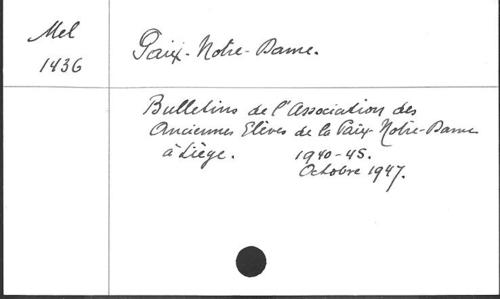 Mel
1436
Paix-Notre-Dame.
Bulletins de l'Association des
Anciennes Elèves de la Paix-Notre-Dame
à Liège. 1940-45.
Octobre 1947.